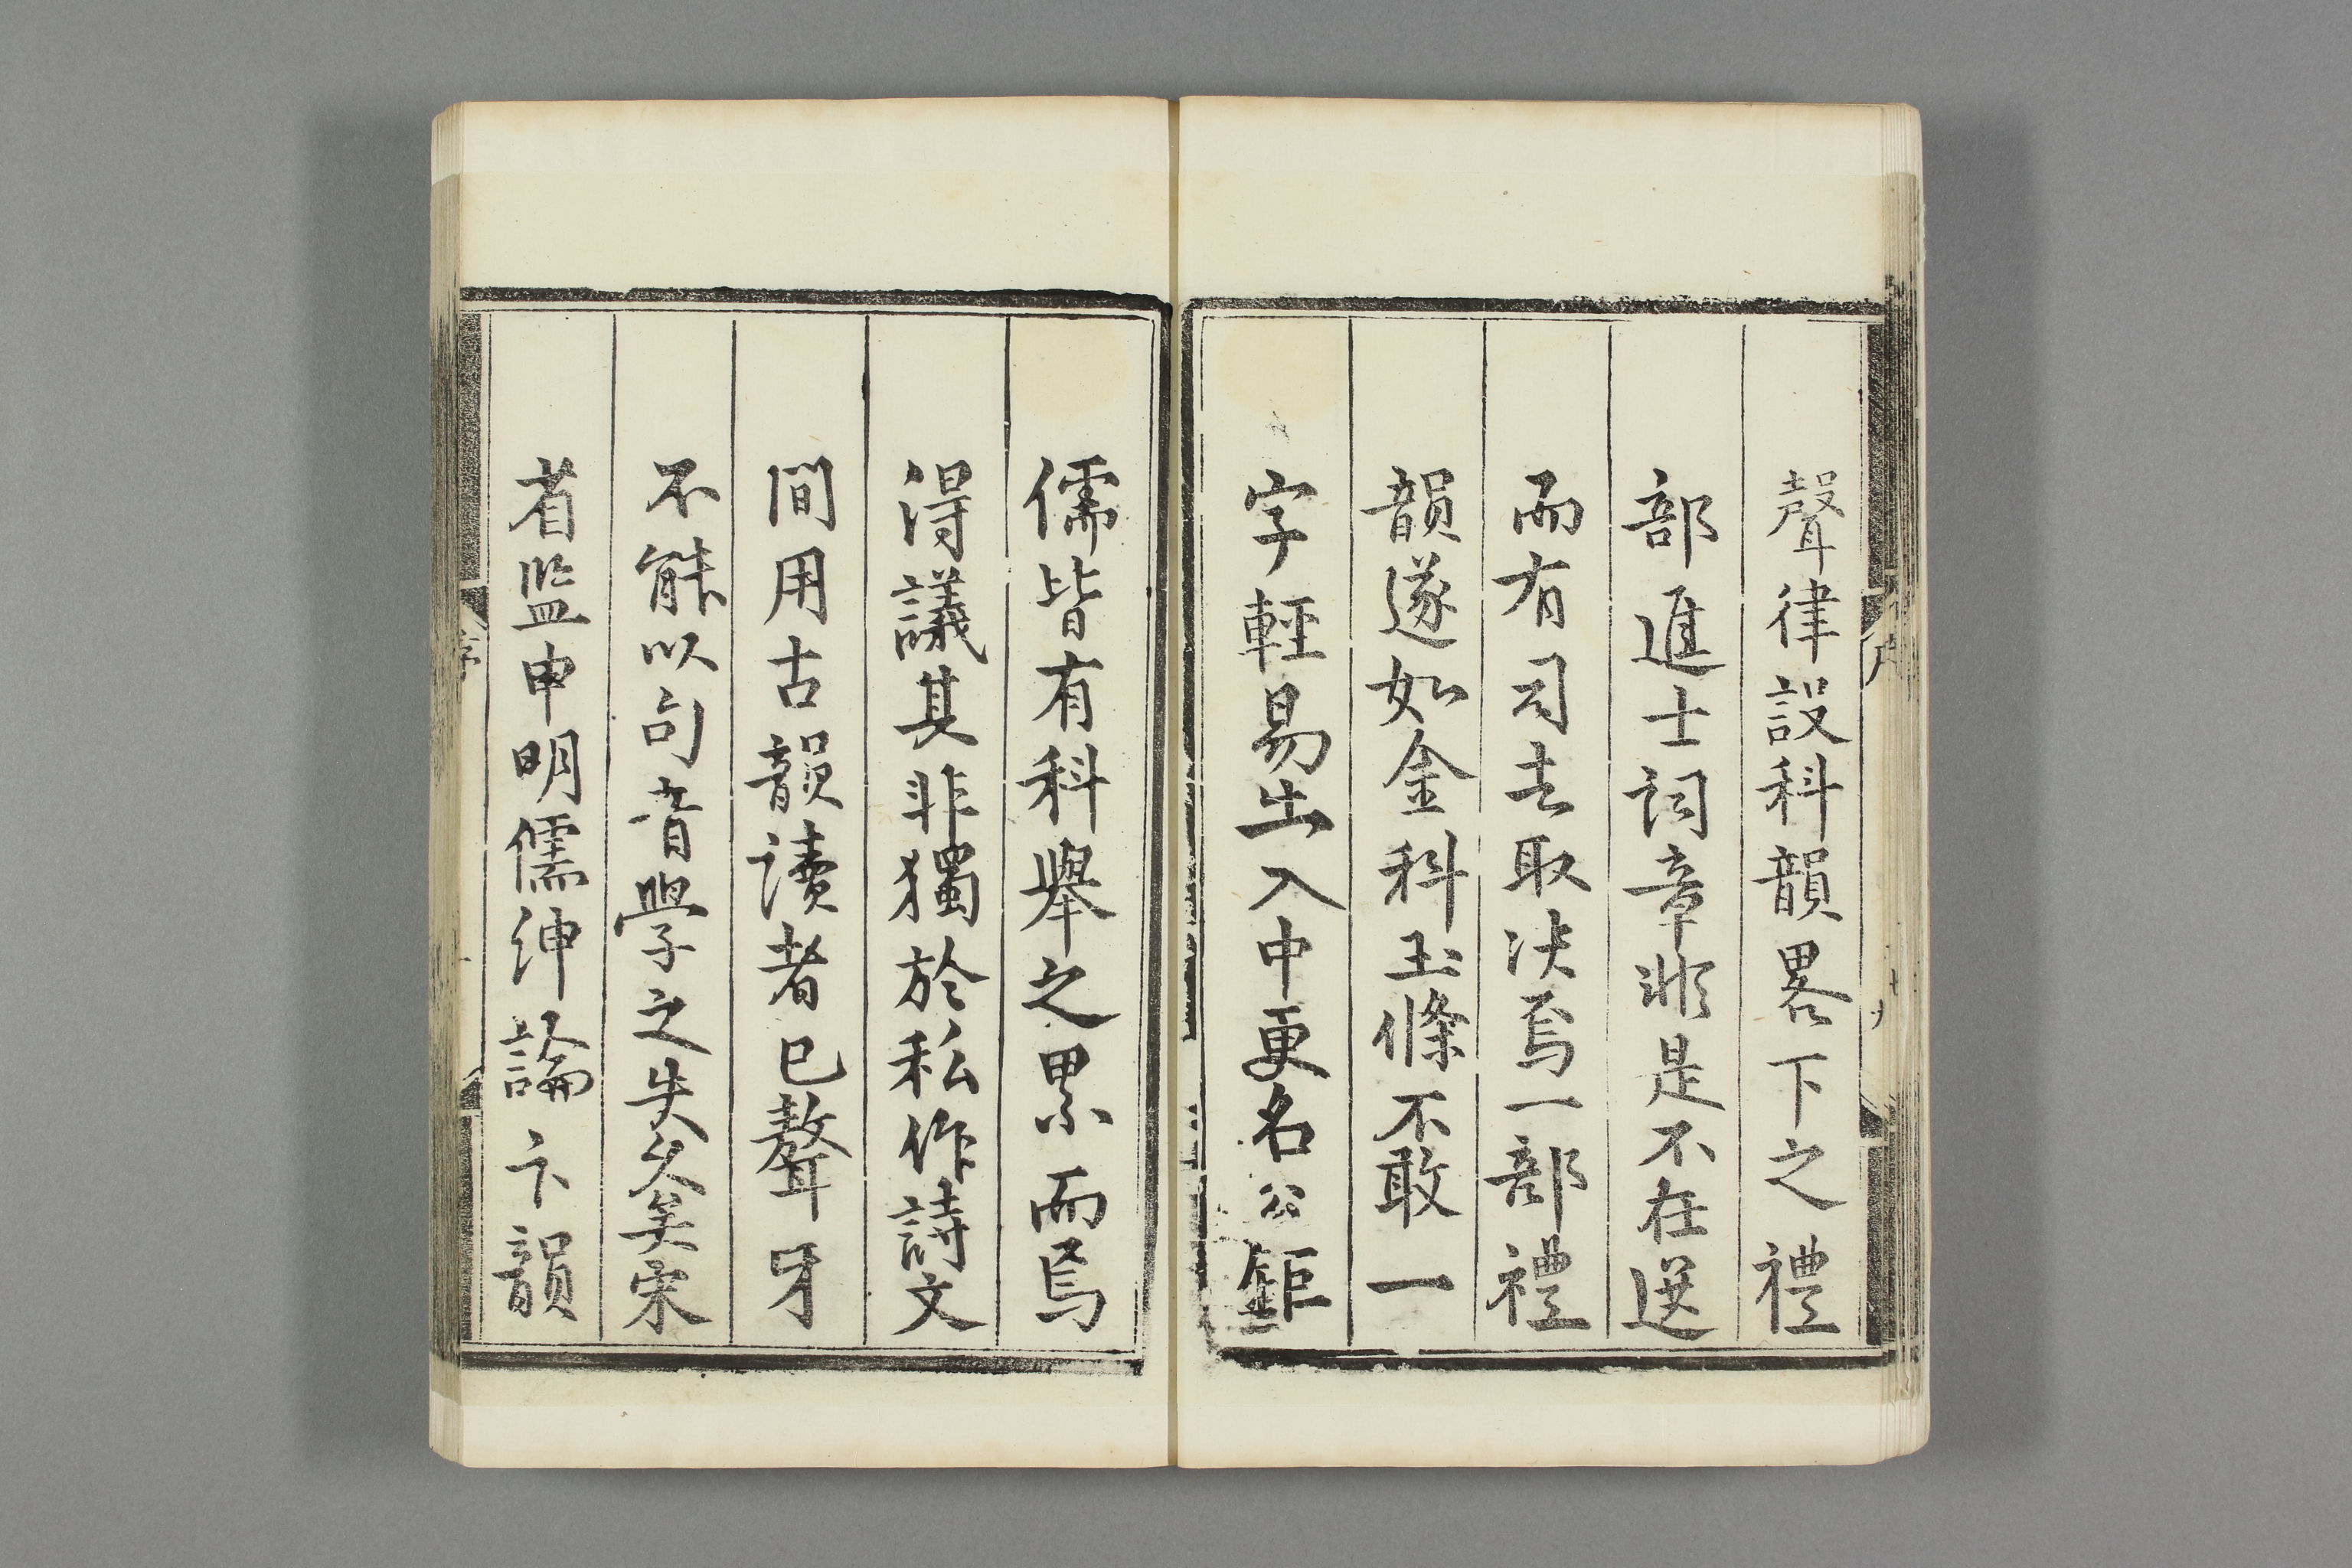 聲律設科韻畧下之禮
部進士詞章非是不在選
而有司去取決焉一部禮
韻遂如金科玉條不敢一
字輕易出入中更名公鉅
儒皆有科舉之累而焉
得議其非獨於私作詩文
間用古韻讀者已聱牙
不能以句音學之失久矣宋
省監申明儒紳論卞韻
序